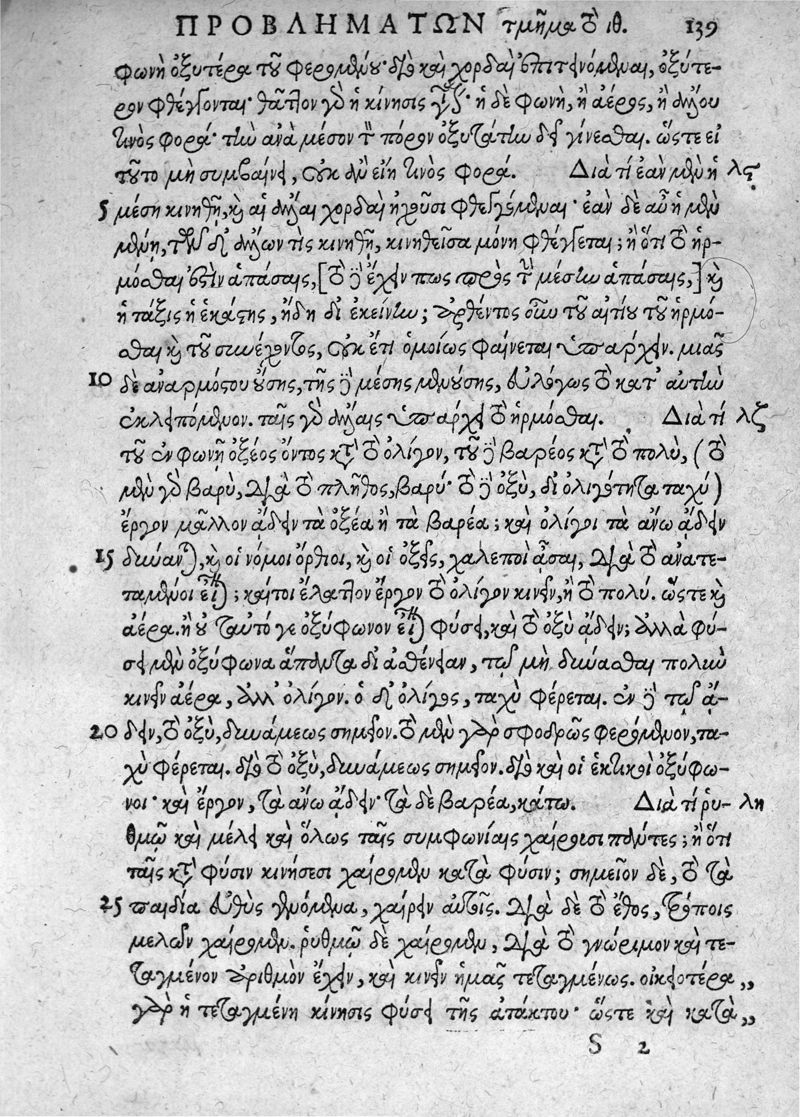 ΠΡΟΒΛΗΜΑΤΩΝ τμῆμα τὸ ιθ. 139
φωνὴ ὀξυτέρα τοῦ φερομένου· διὸ καὶ χορδαὶ ἐπιτεινόμεναι, ὀξύτε-
ρον φθέγγονται· θᾶττον γὰρ ἡ κίνησις γίνεται· ἡ δὲ φωνὴ, ἢ ἀέρος, ἢ ἄλλου
τινὸς φορά· τὴν ἀνὰ μέσον τὸν πόρον ὀξυτάτην δεῖ γίνεσθαι. ὥστε εἰ
τοῦτο μὴ συμβαίνει, οὐκ ἂν εἴη τινὸς φορά. Διὰ τί ἐὰν μὲν ἡ λϛ
5 μέση κινηθῇ, καὶ αἱ ἄλλαι χορδαὶ ἠχοῦσι φθεγγόμεναι· ἐὰν δὲ αὖ ἡ μὲν
μένῃ, τῶν δ' ἄλλων τὶς κινηθῇ, κινηθεῖσα μόνη φθέγγεται; ἢ ὅτι τὸ ἡρ-
μόσθαι ἐστὶν ἁπάσαις, [τὸ δὲ ἔχειν πως πρὸς τὴν μέσην ἁπάσαις,] καὶ
ἡ τάξις ἡ ἑκάστης, ἤδη δι' ἐκείνην; ἀρθέντος οὖν τοῦ αἰτίου τοῦ ἡρμό-
σθαι καὶ τοῦ συνέχοντος, οὐκ ἔτι ὁμοίως φαίνεται ὑπάρχειν. μιᾶς
10 δὲ ἀναρμόστου οὔσης, τῆς δὲ μέσης μενούσης, εὐλόγως τὸ κατ' αὐτὴν
ἐκλειπόμενον. ταῖς γὰρ ἄλλαις ὑπάρχει τὸ ἡρμόσθαι. Διὰ τί λζ
τοῦ ἐν φωνῇ ὀξέος ὄντος κατὰ τὸ ὀλίγον, τοῦ δὲ βαρέος κατὰ τὸ πολὺ, (τὸ
μὲν γὰρ βαρὺ, διὰ τὸ πλῆθος, βαρύ· τὸ δὲ ὀξὺ, δι' ὀλιγότητα ταχύ)
ἔργον μᾶλλον ᾄδειν τὰ ὀξέα ἢ τὰ βαρέα; καὶ ὀλίγοι τὰ ἄνω ᾄδειν
15 δύνανται, καὶ οἱ νόμοι ὄρθιοι, καὶ οἱ ὀξεῖς, χαλεποὶ ᾆσαι, διὰ τὸ ἀνατε-
ταμένοι εἶναι; καίτοι ἔλαττον ἔργον τὸ ὀλίγον κινεῖν, ἢ τὸ πολύ. ὥστε καὶ
ἀέρα. ἢ οὐ ταὐτό γε ὀξύφωνον εἶναι φύσει, καὶ τὸ ὀξὺ ᾄδειν; ἀλλὰ φύ-
σει μὲν ὀξύφωνα ἅπαντα δι' ἀσθένειαν, τῷ μὴ δύνασθαι πολὺν
κινεῖν ἀέρα, ἀλλ' ὀλίγον. ὁ δ' ὀλίγος, ταχὺ φέρεται. ἐν δὲ τῷ ᾄ-
20 δειν, τὸ ὀξὺ, δυνάμεως σημεῖον. τὸ μὲν γὰρ σφοδρῶς φερόμενον, τα-
χὺ φέρεται. διὸ τὸ ὀξὺ, δυνάμεως σημεῖον. διὸ καὶ οἱ ἑκτικοὶ ὀξύφω-
νοι· καὶ ἔργον, τὰ ἄνω ᾄδειν· τὰ δὲ βαρέα, κάτω. Διὰ τί ῥυ- λη
θμῷ καὶ μέλει καὶ ὅλως ταῖς συμφωνίαις χαίρουσι πάντες; ἢ ὅτι
ταῖς κατὰ φύσιν κινήσεσι χαίρομεν κατὰ φύσιν; σημεῖον δὲ, τὸ τὰ
25 παιδία εὐθὺς γενόμενα, χαίρειν αὐτοῖς. διὰ δὲ τὸ ἔθος, τρόποις
μελῶν χαίρομεν. ῥυθμῷ δὲ χαίρομεν, διὰ τὸ γνώριμον καὶ τε-
ταγμένον ἀριθμὸν ἔχειν, καὶ κινεῖν ἡμᾶς τεταγμένως. οἰκειοτέρα „
γὰρ ἡ τεταγμένη κίνησις φύσει τῆς ἀτάκτου· ὥστε καὶ κατὰ „
S 2